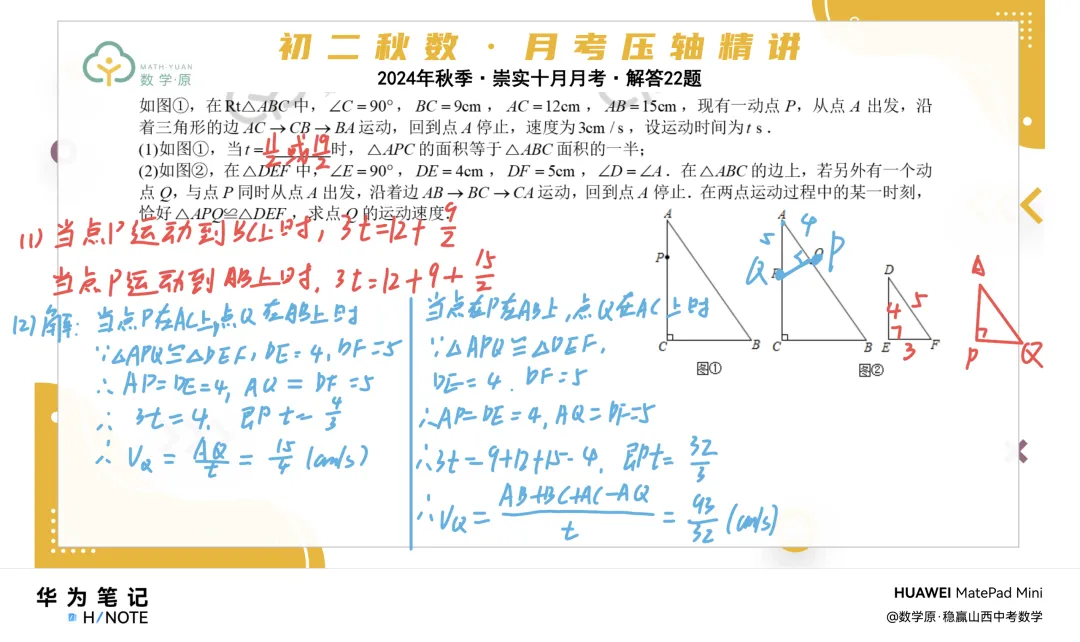 初二秋数·月考压轴精讲
MATH-YUAN
数学·原
2024年秋季·崇实十月月考·解答22题
如图①，在Rt△ABC中，∠C=90°，BC=9cm，AC=12cm，AB=15cm，现有一动点P，从点A出发，沿
着三角形的边AC→CB→BA运动，回到点A停止，速度为3cm/s，设运动时间为t s.
(1)如图①，当t=11/2或19/2时，△APC的面积等于△ABC面积的一半；
(2)如图②，在△DEF中，∠E=90°，DE=4cm，DF=5cm，∠D=∠A．在△ABC的边上，若另外有一个动
点Q，与点P同时从点A出发，沿着边AB→BC→CA运动，回到点A停止．在两点运动过程中的某一时刻，
恰好△APQ≌△DEF，求点Q的运动速度．
(1)当点P运动到BC上时，3t=12+9/2
当点P运动到AB上时，3t=12+9+15/2
(2)解：当点P在AC上，点Q在AB上时
∵△APQ≌△DEF，DE=4，DF=5
∴AP=DE=4，AQ=DF=5
∴3t=4，即t=4/3
∴VQ=AQ/t=15/4(cm/s)
当点在P在AB上，点Q在AC上时
∵△APQ≌△DEF，
DE=4．DF=5
∴AP=DE=4，AQ=DF=5
∴3t=9+12+15-4，即t=32/3
∴VQ=(AB+BC+AC-AQ)/t=93/32(cm/s)
A
P
C
B
图①
A
4
5
Q
P
C
B
D
4
5
E
3
F
图②
A
P
Q
华为笔记
H/NOTE
HUAWEI MatePad Mini
@数学原·稳赢山西中考数学